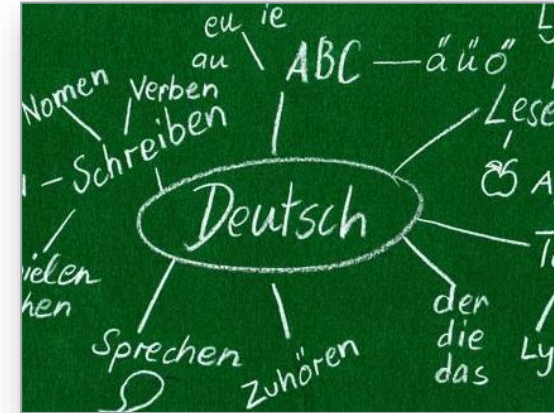 eu ie
au
ABC
ä ü ö
Nomen
Verben
Schreiben
Deutsch
Sprechen
Zuhören
der
die
das